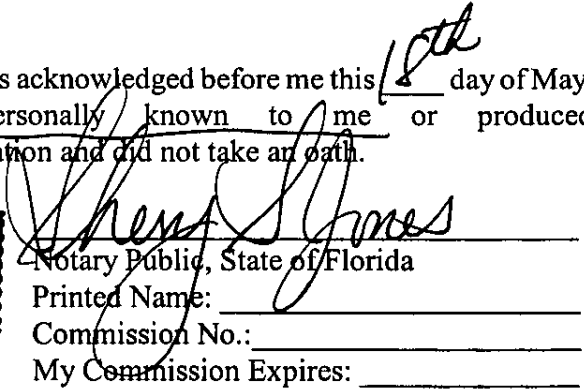 s acknowledged before me this 18th day of May
ersonally known to me or produced
ation and did not take an oath.
Sheryl S Jones
Notary Public, State of Florida
Printed Name:
Commission No.:
My Commission Expires: